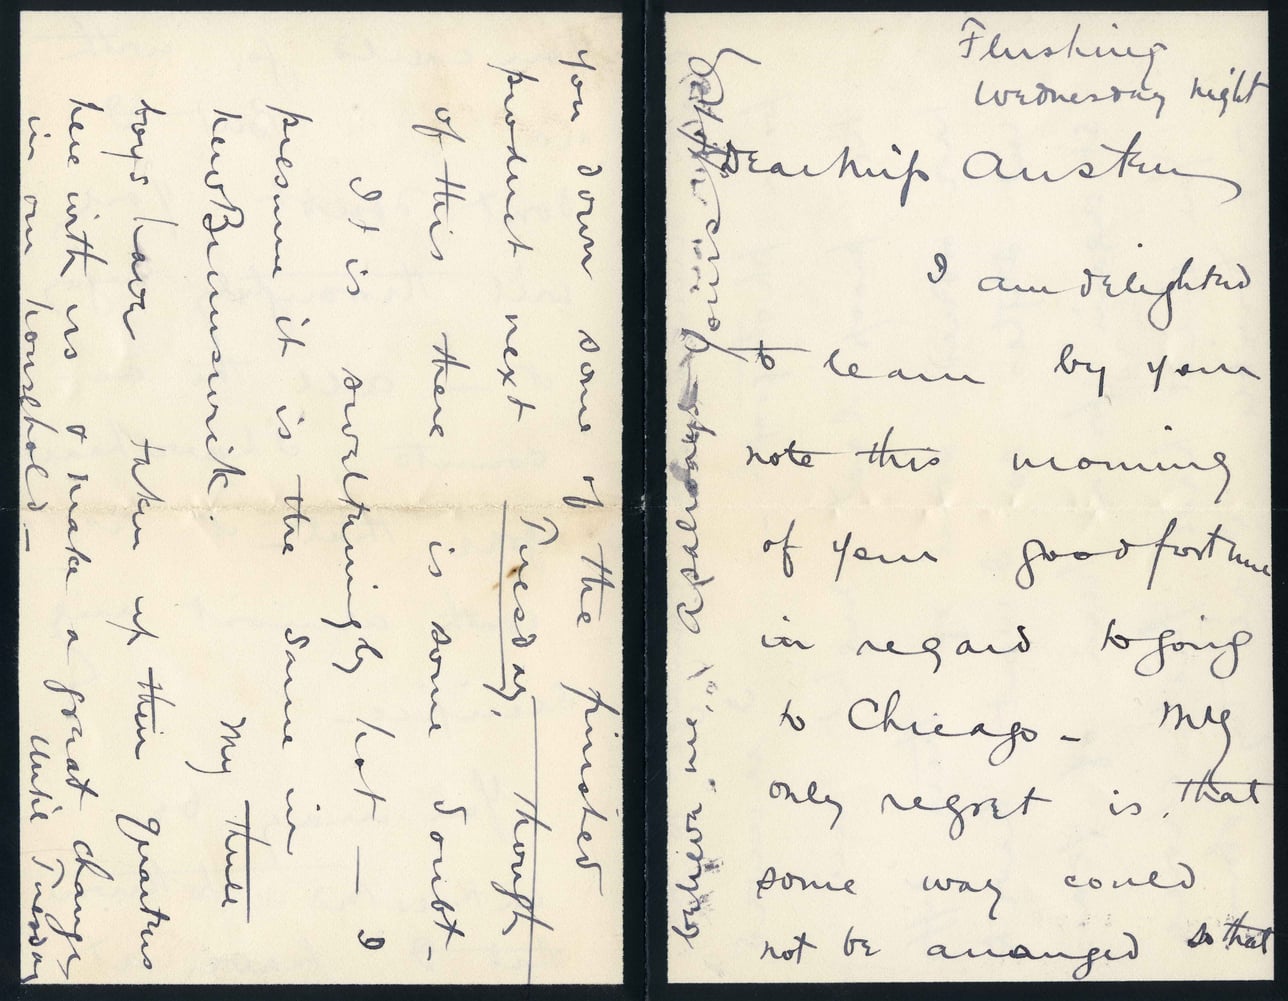 Flushing
Wednesday night
Dear Miss Austen
I am delighted
to learn by your
note this morning
of your good fortune
in regard to going
to Chicago - My
only regret is that
some way could
not be arranged so that
you down some of the finished
product next Tuesday, though
of this there is some doubt.
It is sweltringly hot — I
presume it is the same in
New Brunswick. My three
boys have taken up their quarters
here with us & make a great change
in our household - Until Tuesday
believe me, As always Yours